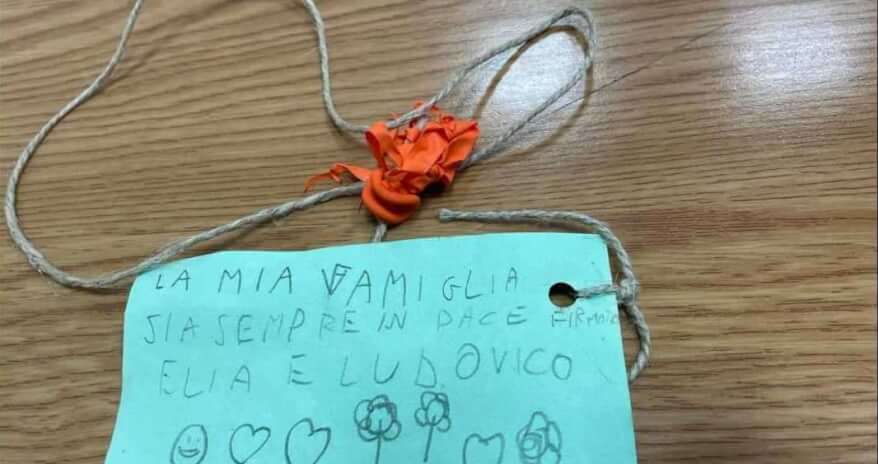 LA MIA FAMIGLIA
SIA SEMPRE IN PACE FIRMATO
ELIA E LUDOVICO